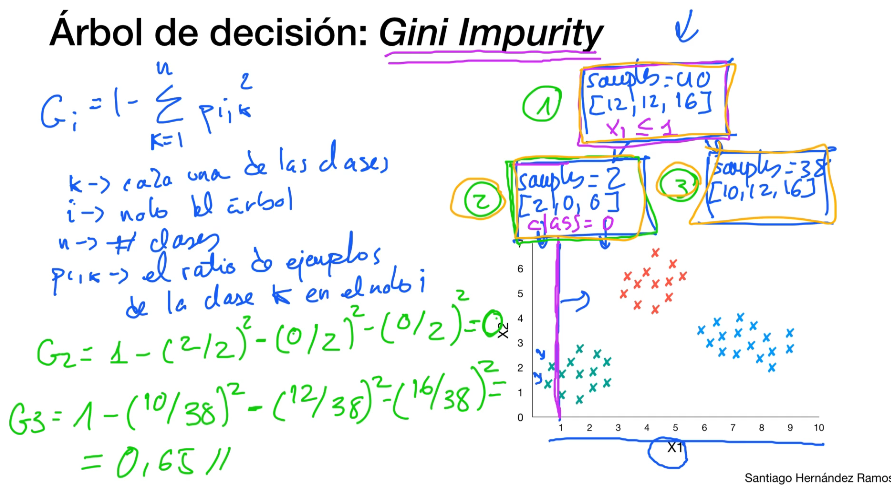 Árbol de decisión: Gini Impurity
Gi = 1 - Σ pi,k²
n
k=1
k -> cada una de las clases
i -> nodo del árbol
n -> # clases
pi,k -> el ratio de ejemplos
de la clase k en el nodo i
G2 = 1 - (2/2)² - (0/2)² - (0/2)² = 0
G3 = 1 - (10/38)² - (12/38)² - (16/38)² =
= 0,65 //
1
samples = 40
[12, 12, 16]
x1 ≤ 1
2
samples = 2
[2, 0, 0]
class = 0
3
samples = 38
[10, 12, 16]
X2
7
6
5
4
3
2
1
0
1 2 3 4 5 6 7 8 9 10
X1
Santiago Hernández Ramos